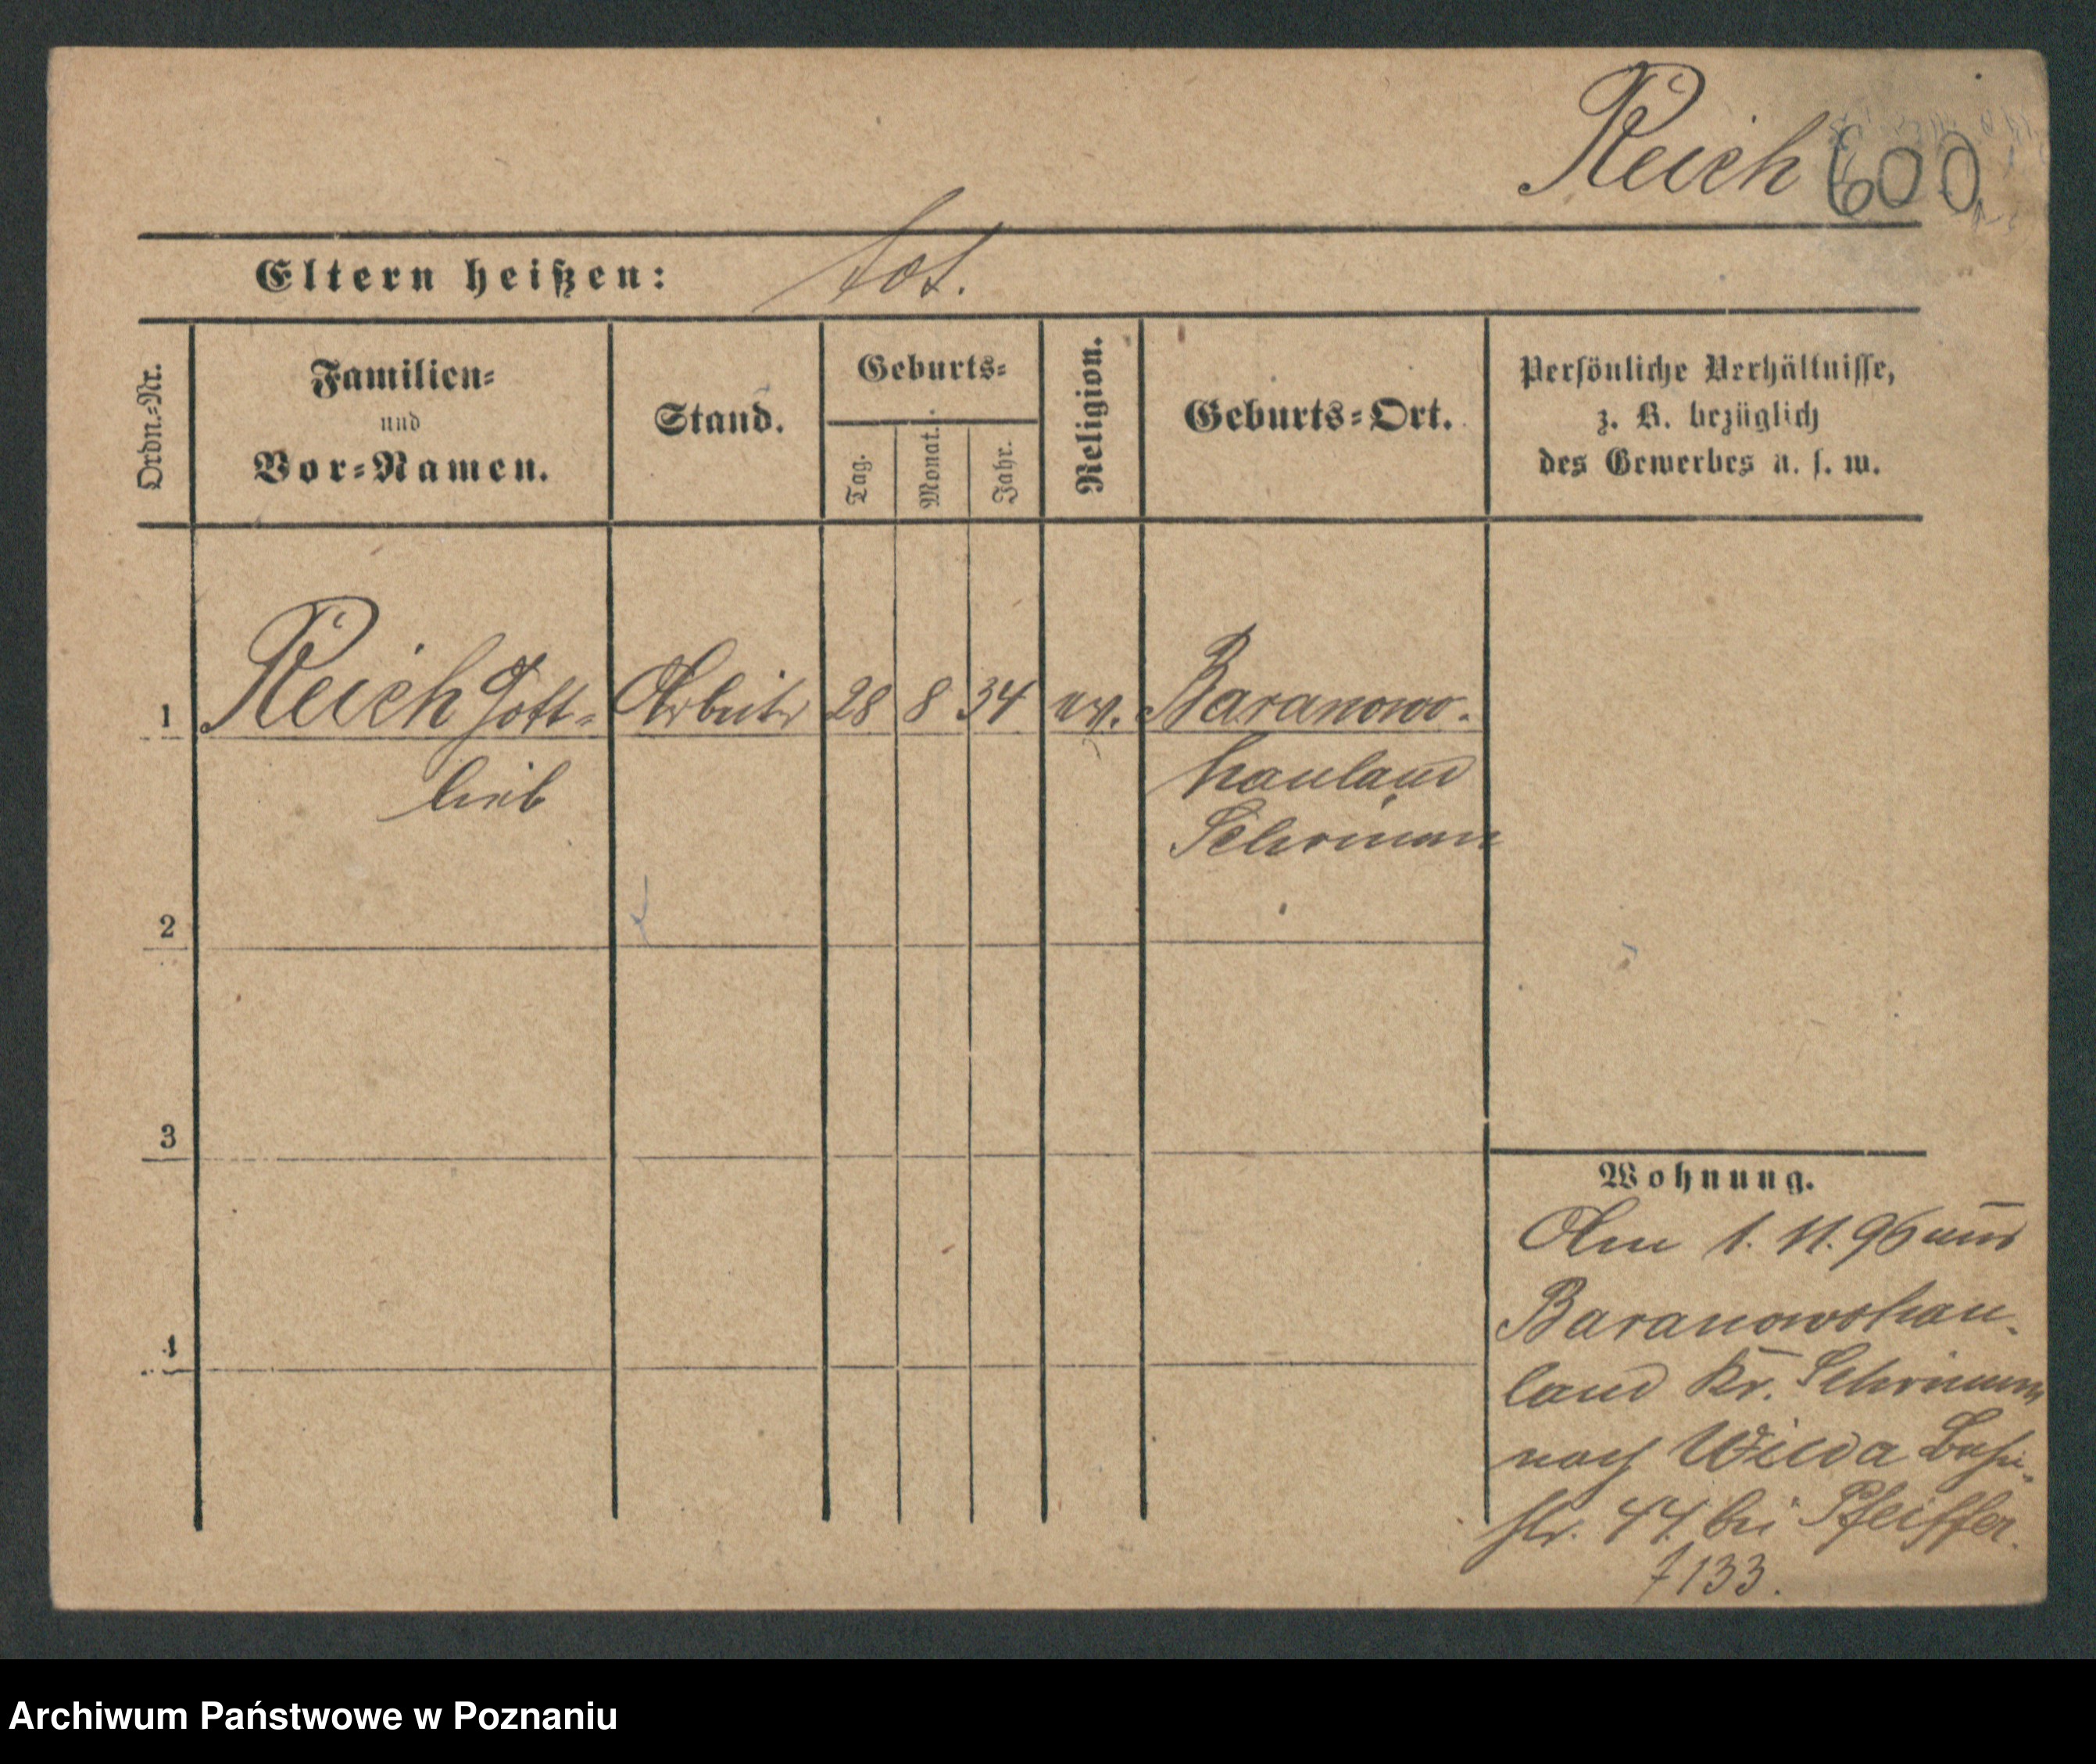 Reich 600
Eltern heißen: tot.
Ordn.-Nr.
Familien-
und
Vor-Namen.
Stand.
Geburts-
Tag.
Monat.
Jahr.
Religion.
Geburts-Ort.
Persönliche Verhältnisse,
z. B. bezüglich
des Gewerbes u. s. w.
1 Reich Gott- Arbeiter 28 8 34 ev. Baranowo-
lieb
hauland
Schrimm
2
3
4
Wohnung.
Am 1. 11. 96 aus
Baranowohau-
land Kr. Schrimm
nach Wilda Bahn-
str. 44. bei Pfeiffer.
7133.
Archiwum Państwowe w Poznaniu